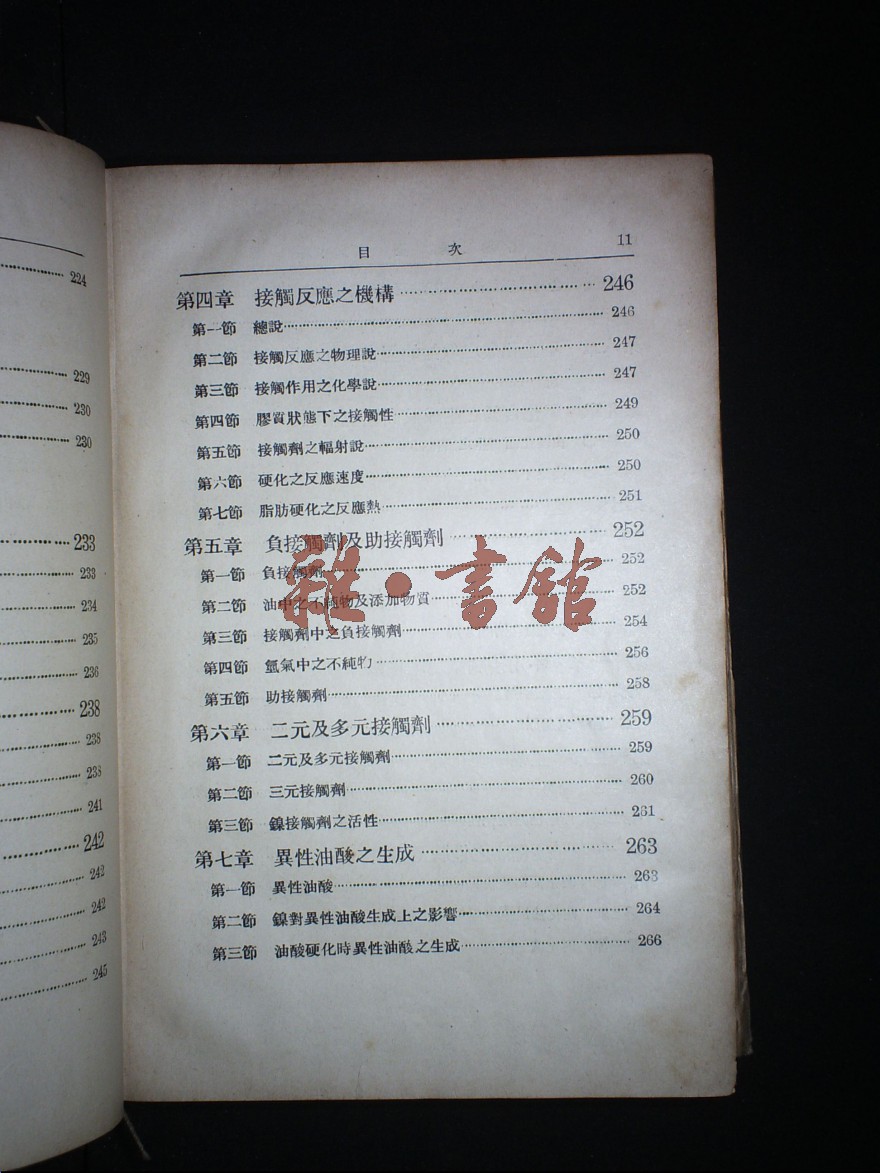 224
229
230
230
233
233
234
235
236
238
238
238
241
242
242
242
243
245
目 次 11
第四章 接觸反應之機構 246
第一節 總說 246
第二節 接觸反應之物理說 247
第三節 接觸作用之化學說 247
第四節 膠質狀態下之接觸性 249
第五節 接觸劑之輻射說 250
第六節 硬化之反應速度 250
第七節 脂肪硬化之反應熱 251
第五章 負接觸劑及助接觸劑 252
第一節 負接觸劑 252
第二節 油中之不純物及添加物質 252
第三節 接觸劑中之負接觸劑 254
第四節 氫氣中之不純物 256
第五節 助接觸劑 258
第六章 二元及多元接觸劑 259
第一節 二元及多元接觸劑 259
第二節 三元接觸劑 260
第三節 鎳接觸劑之活性 261
第七章 異性油酸之生成 263
第一節 異性油酸 263
第二節 鎳對異性油酸生成上之影響 264
第三節 油酸硬化時異性油酸之生成 266
雜·書館